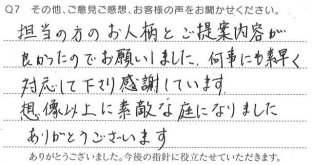 Q7 その他、ご意見ご感想、お客様の声をお聞かせください。
担当の方のお人柄とご提案内容が
良かったのでお願いしました。何事にも素早く
対応して下さり感謝しています。
想像以上に素敵な庭になりました
ありがとうございます
ありがとうございました。今後の指針に役立たせていただきます。